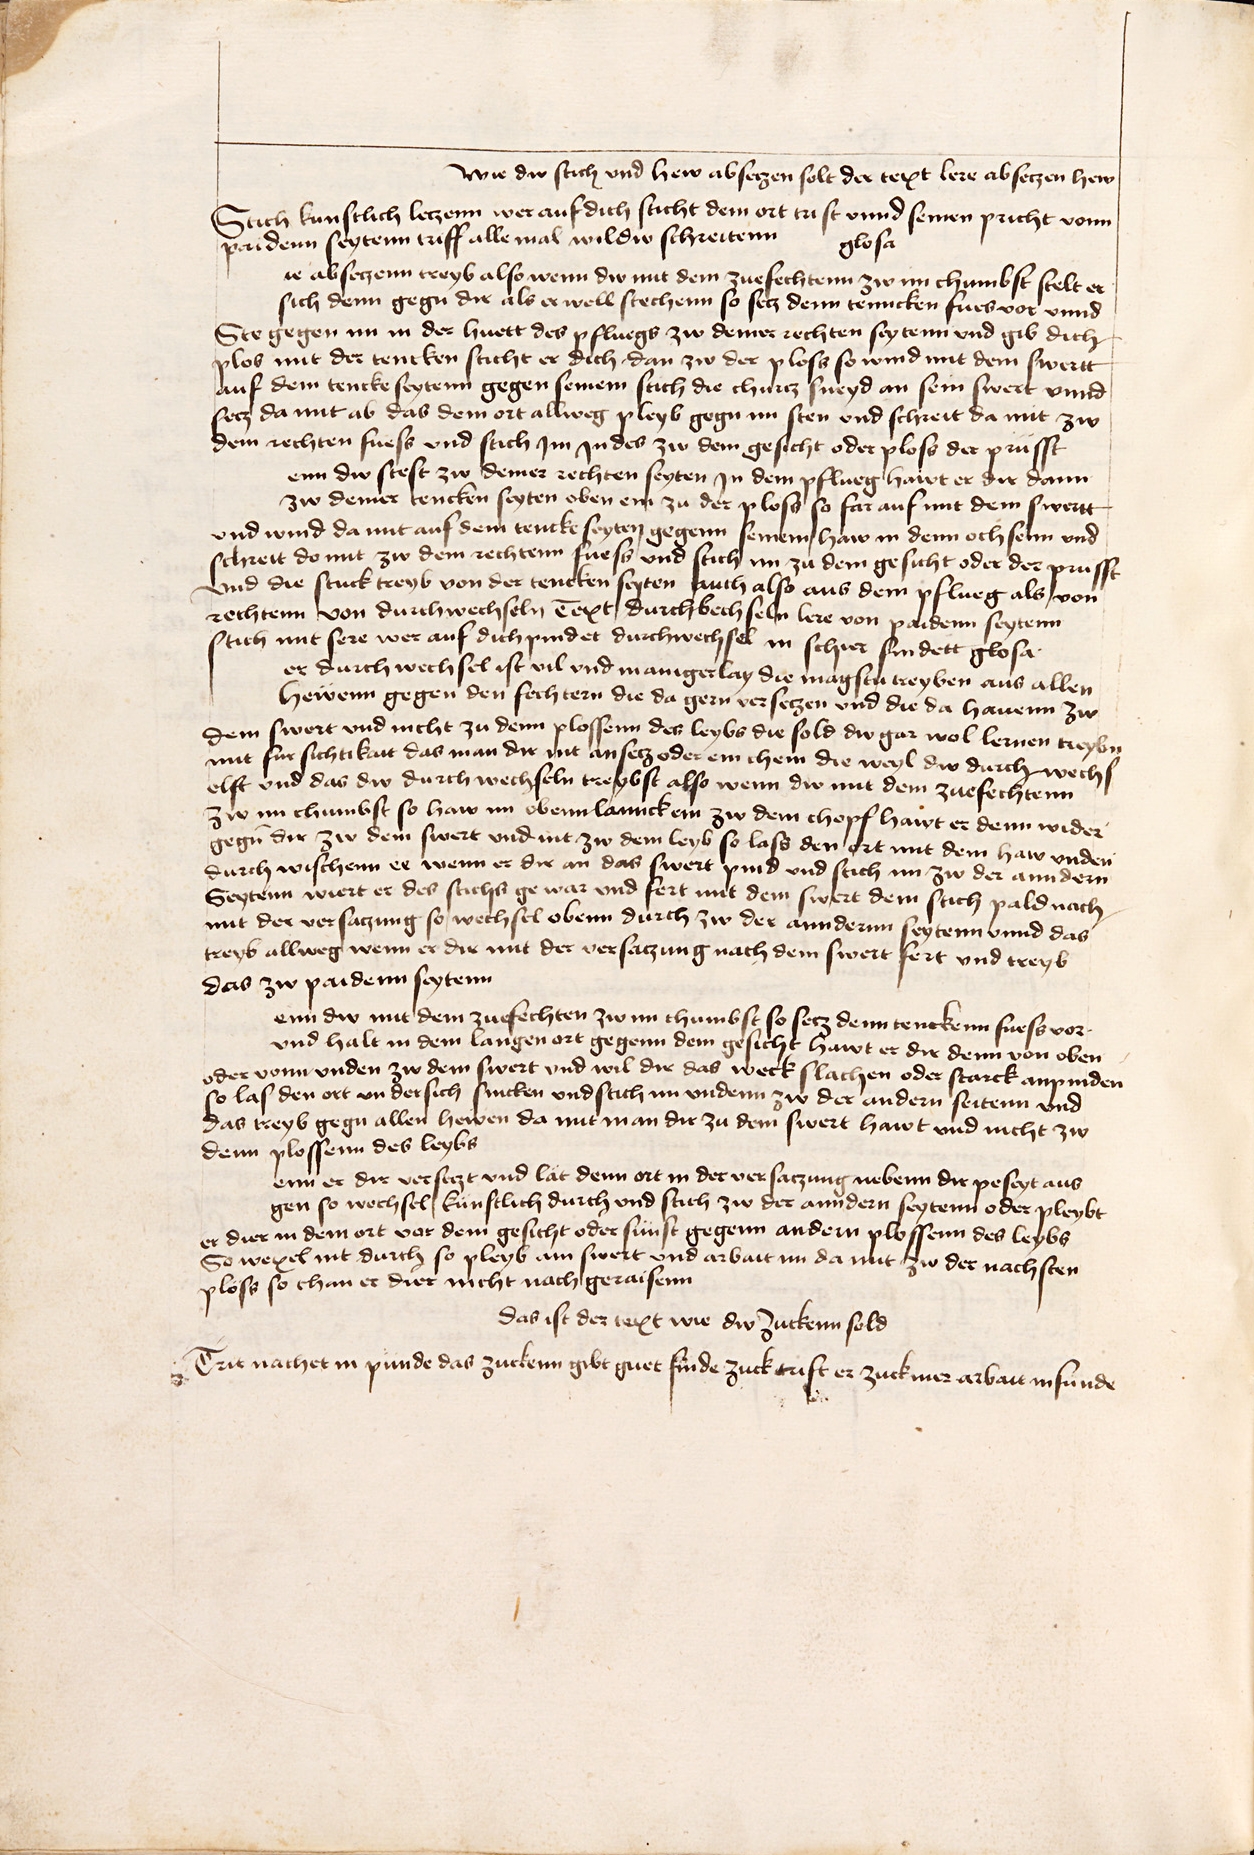 Wie dw stich vnd hew absetzen solt der text lere absetzen hew
Stich kunstlich letzenn wer auf dich sticht dem ort trifft vnnd seinen pricht vonn
paidenn seytenn triff alle mal wildw schreitenn glosa
ie absetzenn treyb also wenn dw mit dem zuefechtenn zw im chumbst stelt er
sich denn gegn dir als er well stechenn so setz denn tenncken fues vor vnnd
Ste gegen im in der huett des pfluegs zw deiner rechten seytenn vnd gib dich
plos mit der tencken sticht er dich dan zw der ploss so wind mit dem swertt
auf dein tencke seytenn gegen seinem stich die churtz sneyd an sein swert vnnd
setz da mit ab das dein ort allweg pleyb gegn im sten vnd schreit da mit zw
dem rechten fuess vnd stich Im Indes zw dem gesicht oder ploss der prüsst
enn dw stest zw deiner rechten seyten In dem pflueg hawt er dir dann
zw deiner tencken seyten oben ein zu der ploss so far auf mit dem swertt
vnd wind da mit auf dein tencke seyten gegenn seinem haw in denn ochsenn vnd
schreit do mit zw dem rechtenn fuess vnd stich im zu dem gesicht oder der prusst
vnd die stuck treyb von der tencken seyten auch also aus dem pflueg als von
rechtenn von durchwechseln Text durchbechseln lere von paidenn seytenn
stich mit sere wer auf dich pindet durchwechsel in schier findett glosa
er durchwechsel ist vil vnd manigerlay die magstu treyben aus allen
hewenn gegen den fechtern die da gern versetzen vnd die da hauenn zw
dem swert vnd nicht zu denn plossenn des leybs die sold dw gar wol lernen treybn
mit fursichtikait das man dir nit ansetz oder ein chem die weyl dw durch wechs
elst vnd das dw durchwechseln treybst also wenn dw mit dem zuefechtenn
zw im chumbst so haw im obenn lannck ein zw dem chopf hawt er denn wider
gegn dir zw dem swert vnd nit zw dem leyb so lass den ort mit dem haw vnden
durch wischenn ee wenn er dir an das swert pind vnd stich im zw der anndern
Seytenn wiert er des stichs gewar vnd fert mit dem swert dem stich pald nach
mit der versatzung so wechsel obenn durch zw der anndernn seytenn vnnd das
treyb allweg wenn er dir mit der versatzung nach dem swert fert vnd treyb
das zw paidenn seytenn
enn dw mit dem zuefechten zw im chumbst so setz denn tenckenn fuess vor
vnd halt in dem langen ort gegenn dem gesicht hawt er dir denn von oben
oder vonn vnden zw dem swert vnd wil dir das weck slachen oder starck anpinden
so las den ort vndersich sincken vnd stich im vndenn zw der andern seitenn vnd
das treyb gegn allen hewen da mit man dir zu dem swert hawt vnd nicht zw
denn plossenn des leybs
enn er dir versetzt vnd lät denn ort in der versatzung nebenn dir peseyt aus
gen so wechsel künstlich durch vnd stich zw der anndern seytenn oder pleybt
er dier in dem ort vor dem gesicht oder sünst gegenn andern plossenn des leybs
So wexel nit durch so pleyb am swert vnd arbait im da mit zw der nachsten
ploss so chan er dier nicht nach geraisenn
das ist der text wie dw Zuckenn sold
Trit nachet in punde das zuckenn gibt guet finde zuck trift er zuck mer arbait in sunde